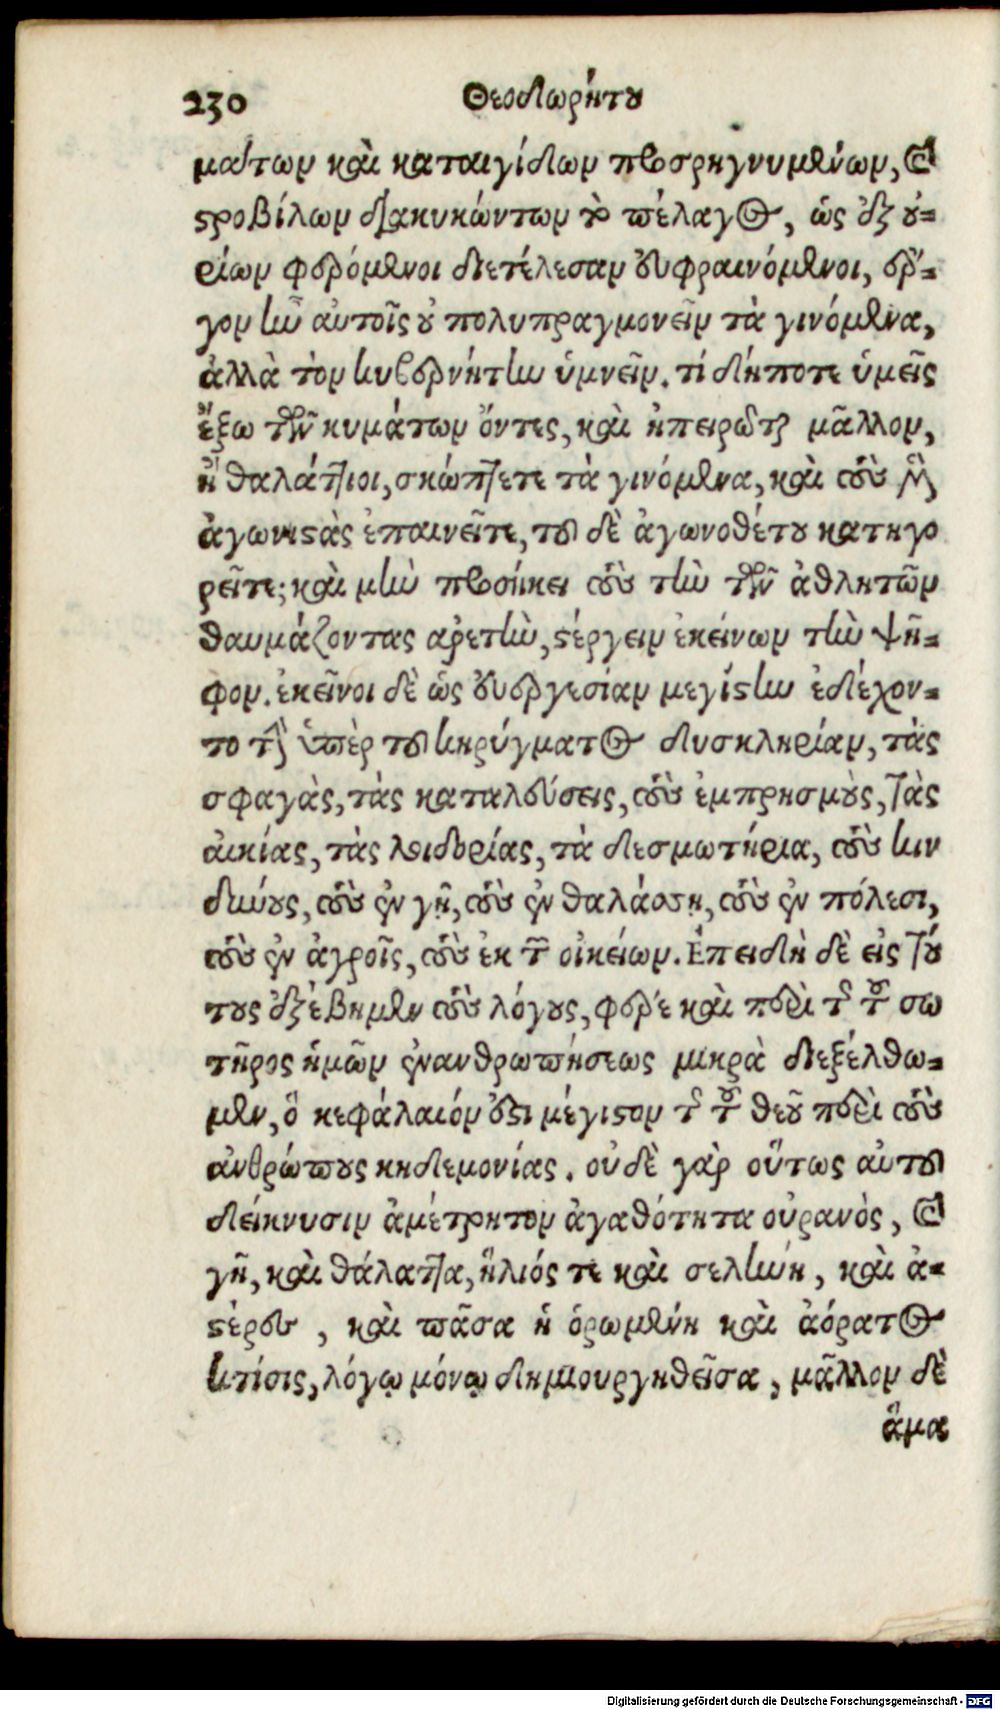 230 Θεοδωρήτου
μάτων καὶ καταιγίδων προσρηγνυμένων, καὶ
στροβίλων διακυκώντων τὸ πέλαγος, ὡς ἐξ οὐ-
ρίων φερόμενοι διετέλεσαν εὐφραινόμενοι, ἔρ-
γον ἦν αὐτοῖς οὐ πολυπραγμονεῖν τὰ γινόμενα,
ἀλλὰ τὸν κυβερνήτην ὑμνεῖν. τί δήποτε ὑμεῖς
ἔξω τῶν κυμάτων ὄντες, καὶ ἠπειρῶται μᾶλλον,
ἢ θαλάττιοι, σκώπτετε τὰ γινόμενα, καὶ τοὺς μὲν
ἀγωνιστὰς ἐπαινεῖτε, τοῦ δὲ ἀγωνοθέτου κατηγο
ρεῖτε; καὶ μὴν προσήκει τοὺς τὴν τῶν ἀθλητῶν
θαυμάζοντας ἀρετὴν, στέργειν ἐκείνων τὴν ψῆ-
φον. ἐκεῖνοι δὲ ὡς εὐεργεσίαν μεγίστην ἐδέχον-
το τὴν ὑπὲρ τοῦ κηρύγματος δυσκληρίαν, τὰς
σφαγὰς, τὰς καταλεύσεις, τοὺς ἐμπρησμοὺς, τὰς
αἰκίας, τὰς λοιδορίας, τὰ δεσμωτήρια, τοὺς κιν
δύνους, τοὺς ἐν γῇ, τοὺς ἐν θαλάσσῃ, τοὺς ἐν πόλεσι,
τοὺς ἐν ἀγροῖς, τοὺς ἐκ τῶν οἰκείων. Ἐπειδὴ δὲ εἰς τού
τους ἐξέβημεν τοὺς λόγους, φέρε καὶ περὶ τῆς τοῦ σω
τῆρος ἡμῶν ἐνανθρωπήσεως μικρὰ διεξέλθω-
μεν, ὃ κεφάλαιόν ἐστι μέγιστον τῆς τοῦ θεοῦ περὶ τοὺς
ἀνθρώπους κηδεμονίας. οὐδὲ γὰρ οὕτως αὐτοῦ
δείκνυσιν ἀμέτρητον ἀγαθότητα οὐρανὸς, καὶ
γῆ, καὶ θάλαττα, ἥλιός τε καὶ σελήνη, καὶ ἀ-
στέρες, καὶ πᾶσα ἡ ὁρωμένη καὶ ἀόρατος
κτίσις, λόγῳ μόνῳ δημιουργηθεῖσα, μᾶλλον δὲ
ἅμα
Digitalisierung gefördert durch die Deutsche Forschungsgemeinschaft - DFG